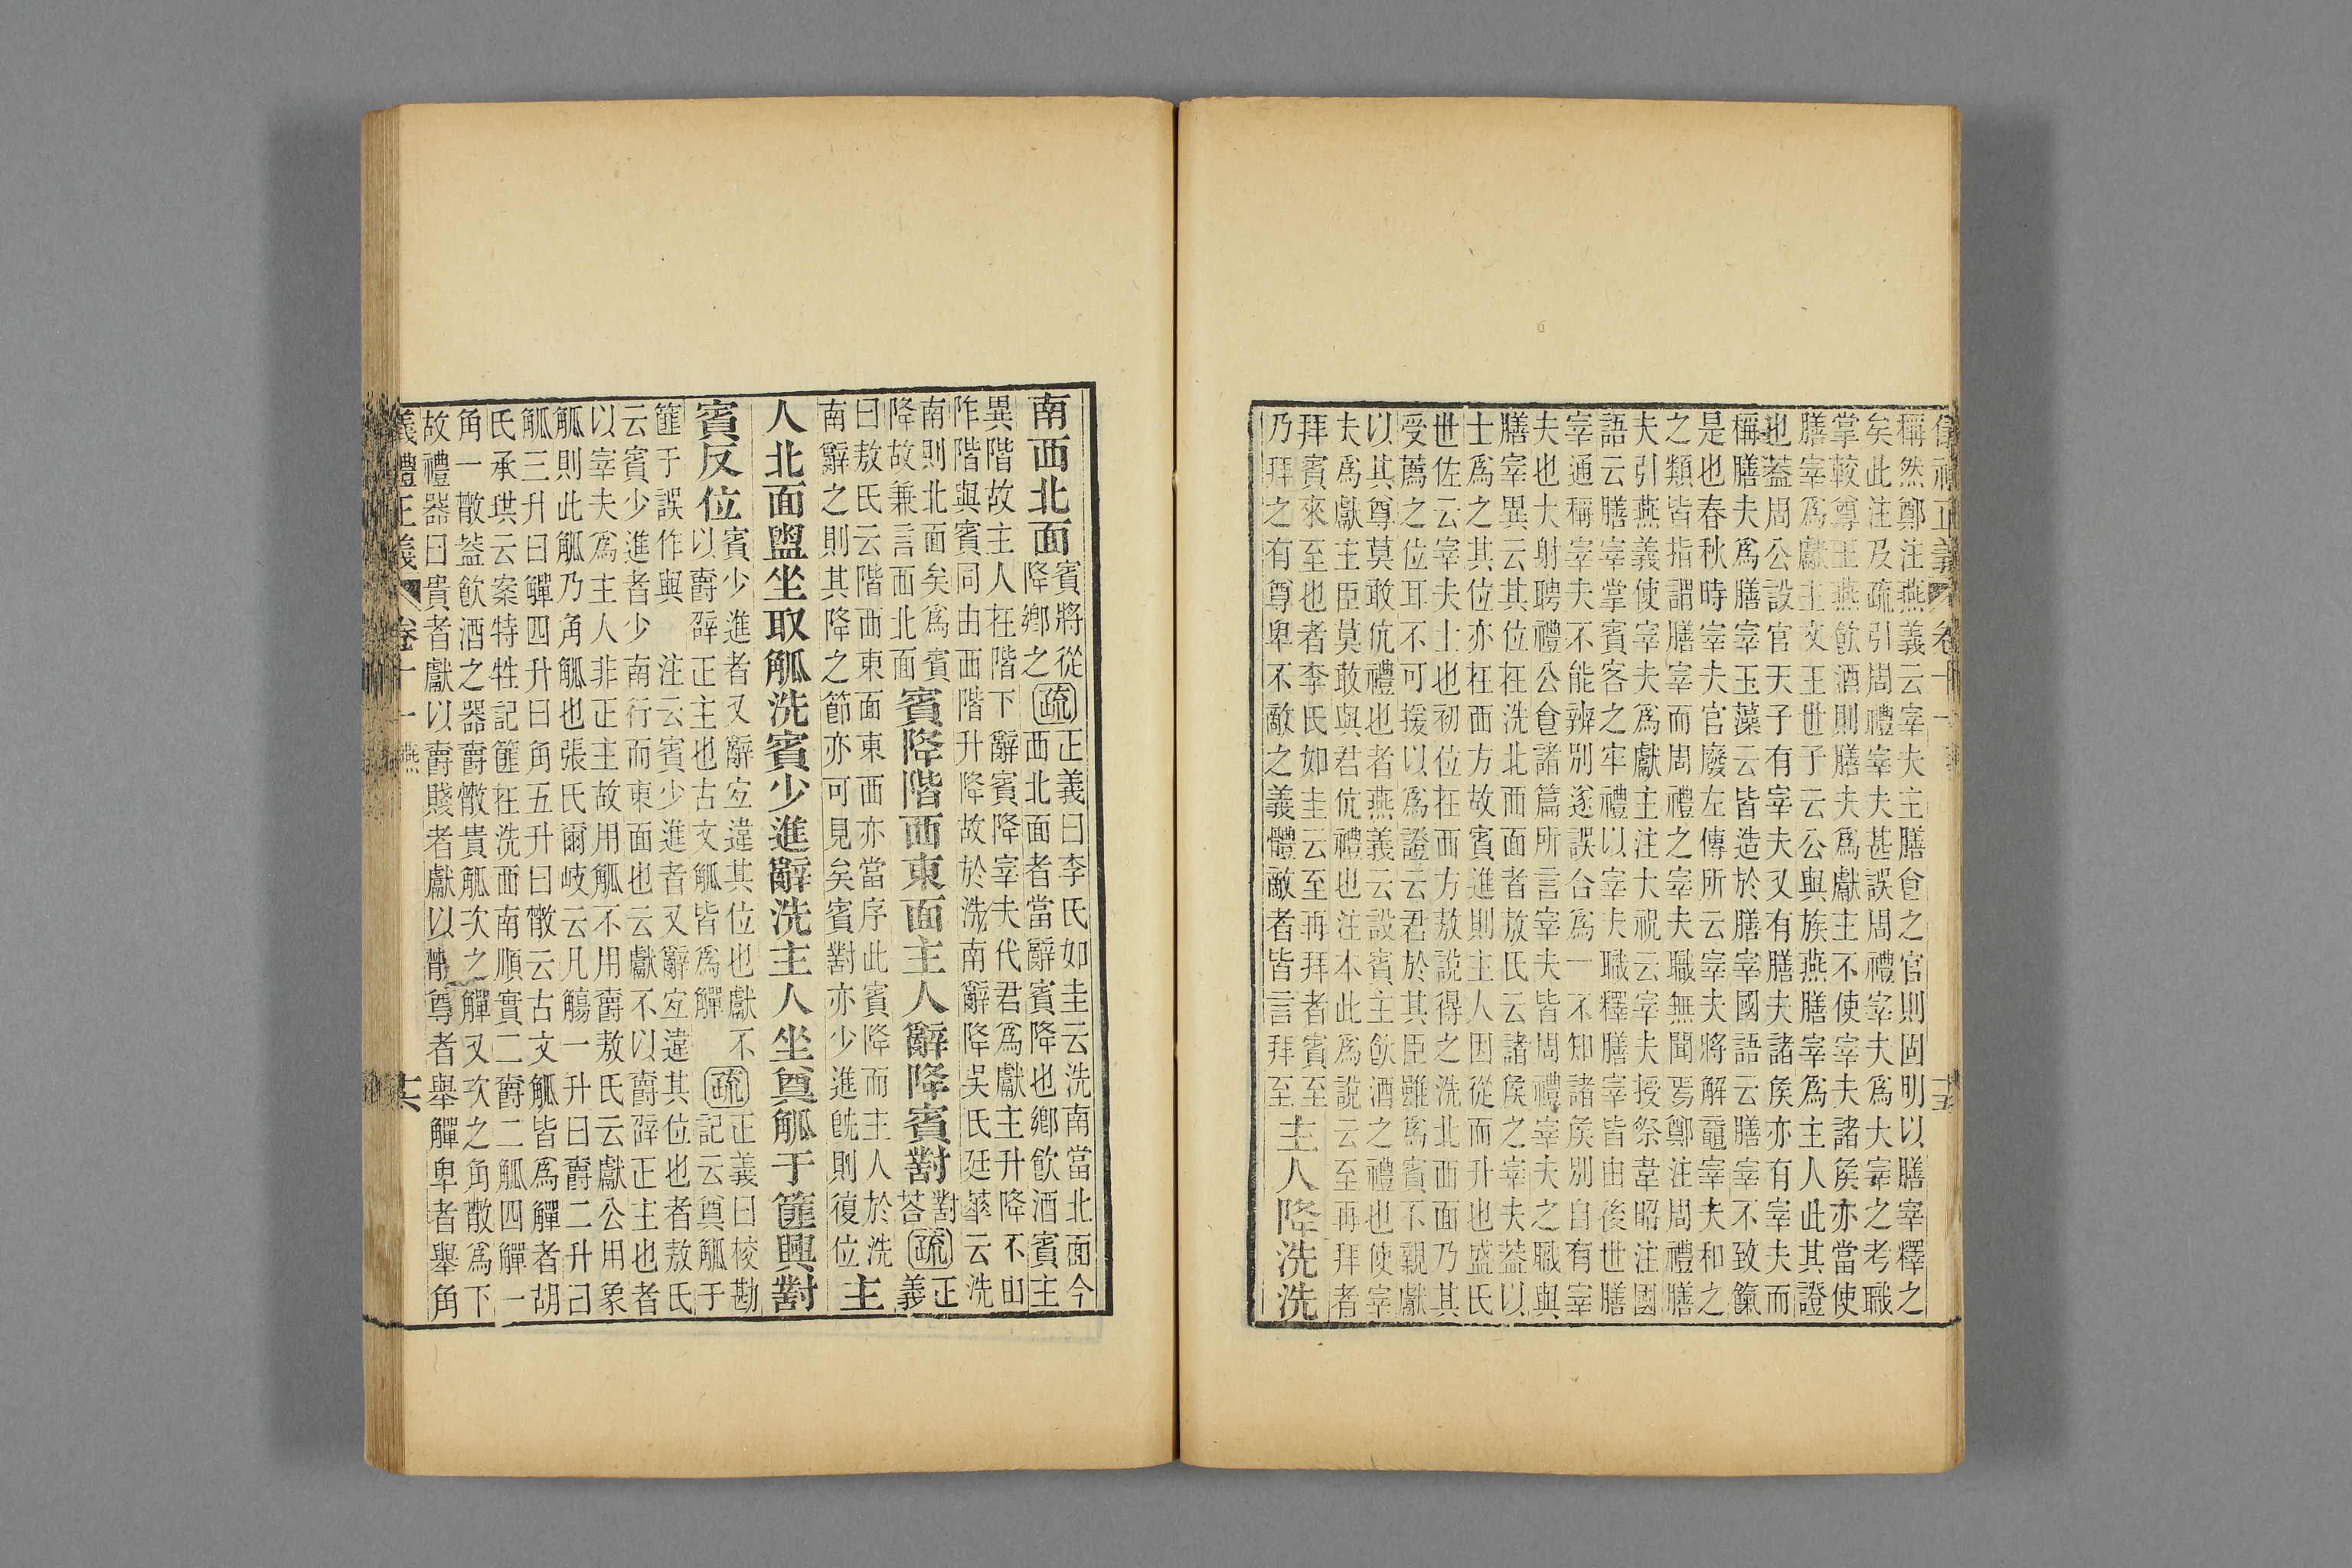 稱然鄭注燕義云宰夫主膳食之官則固明以膳宰釋之
矣此注及疏引周禮宰夫甚誤周禮宰夫爲大宰之考職
掌較尊王燕飮酒則膳夫爲獻主不使宰夫諸矦亦當使
膳宰爲獻主文王世子云公與族燕膳宰爲主人此其證
也葢周公設官天子有宰夫又有膳夫諸矦亦有宰夫而
稱膳夫爲膳宰玉藻云皆造於膳宰國語云膳宰不致餼
是也春秋時宰夫官廢左傳所云宰夫將解黿宰夫和之
之類皆指謂膳宰而周禮之宰夫職無聞焉鄭注周禮膳
夫引燕義使宰夫爲獻主注大祝云宰夫授祭韋昭注國
語云膳宰掌賓客之牢禮以宰夫職釋膳宰皆由後世膳
宰通稱宰夫不能辨別遂誤合爲一不知諸矦別自有宰
夫也大射聘禮公食諸篇所言宰夫皆周禮宰夫之職與
膳宰異云其位在洗北西面者敖氏云諸矦之宰夫葢以
士爲之其位亦在西方故賓進則主人因從而升也盛氏
世佐云宰夫士也初位在西方敖說得之洗北西面乃其
受薦之位耳不可援以爲證云君於其臣雖爲賓不親獻
以其尊莫敢伉禮也者燕義云設賓主飮酒之禮也使宰
夫爲獻主臣莫敢與君伉禮也注本此爲說云至再拜者
拜賓來至也者李氏如圭云至再拜者賓至
乃拜之有尊卑不敵之義體敵者皆言拜至主人降洗洗
南西北面賓將從降鄕之疏正義曰李氏如圭云洗南當北面今
西北面者當辭賓降也鄕飮酒賓主
異階故主人在階下辭賓降宰夫代君爲獻主升降不由
阼階與賓同由西階升降故於洗南辭降吳氏廷華云洗
南則北面矣爲賓
降故兼言西北面賓降階西東面主人辭降賓對對荅疏正義
曰敖氏云階西東面東西亦當序此賓降而主人於洗
南辭之則其降之節亦可見矣賓對亦少進旣則復位主
人北面盥坐取觚洗賓少進辭洗主人坐奠觚于篚興對
賓反位賓少進者又辭宐違其位也獻不以爵辟正主也古文觚皆爲觶疏正義曰校勘記云奠觚于
篚于誤作與 注云賓少進者又辭宐違其位也者敖氏
云賓少進者少南行而東面也云獻不以爵辟正主也者
以宰夫爲主人非正主故用觚不用爵敖氏云獻公用象
觚則此觚乃角觚也張氏爾岐云凡觴一升曰爵二升曰
觚三升曰觶四升曰角五升曰散云古文觚皆爲觶者胡
氏承珙云案特牲記篚在洗西南順實二爵二觚四觶一
角一散葢飮酒之器爵散貴觚次之觶又次之角散爲下
故禮器曰貴者獻以爵賤者獻以散尊者舉觶卑者舉角
義禮正義 卷十一 燕